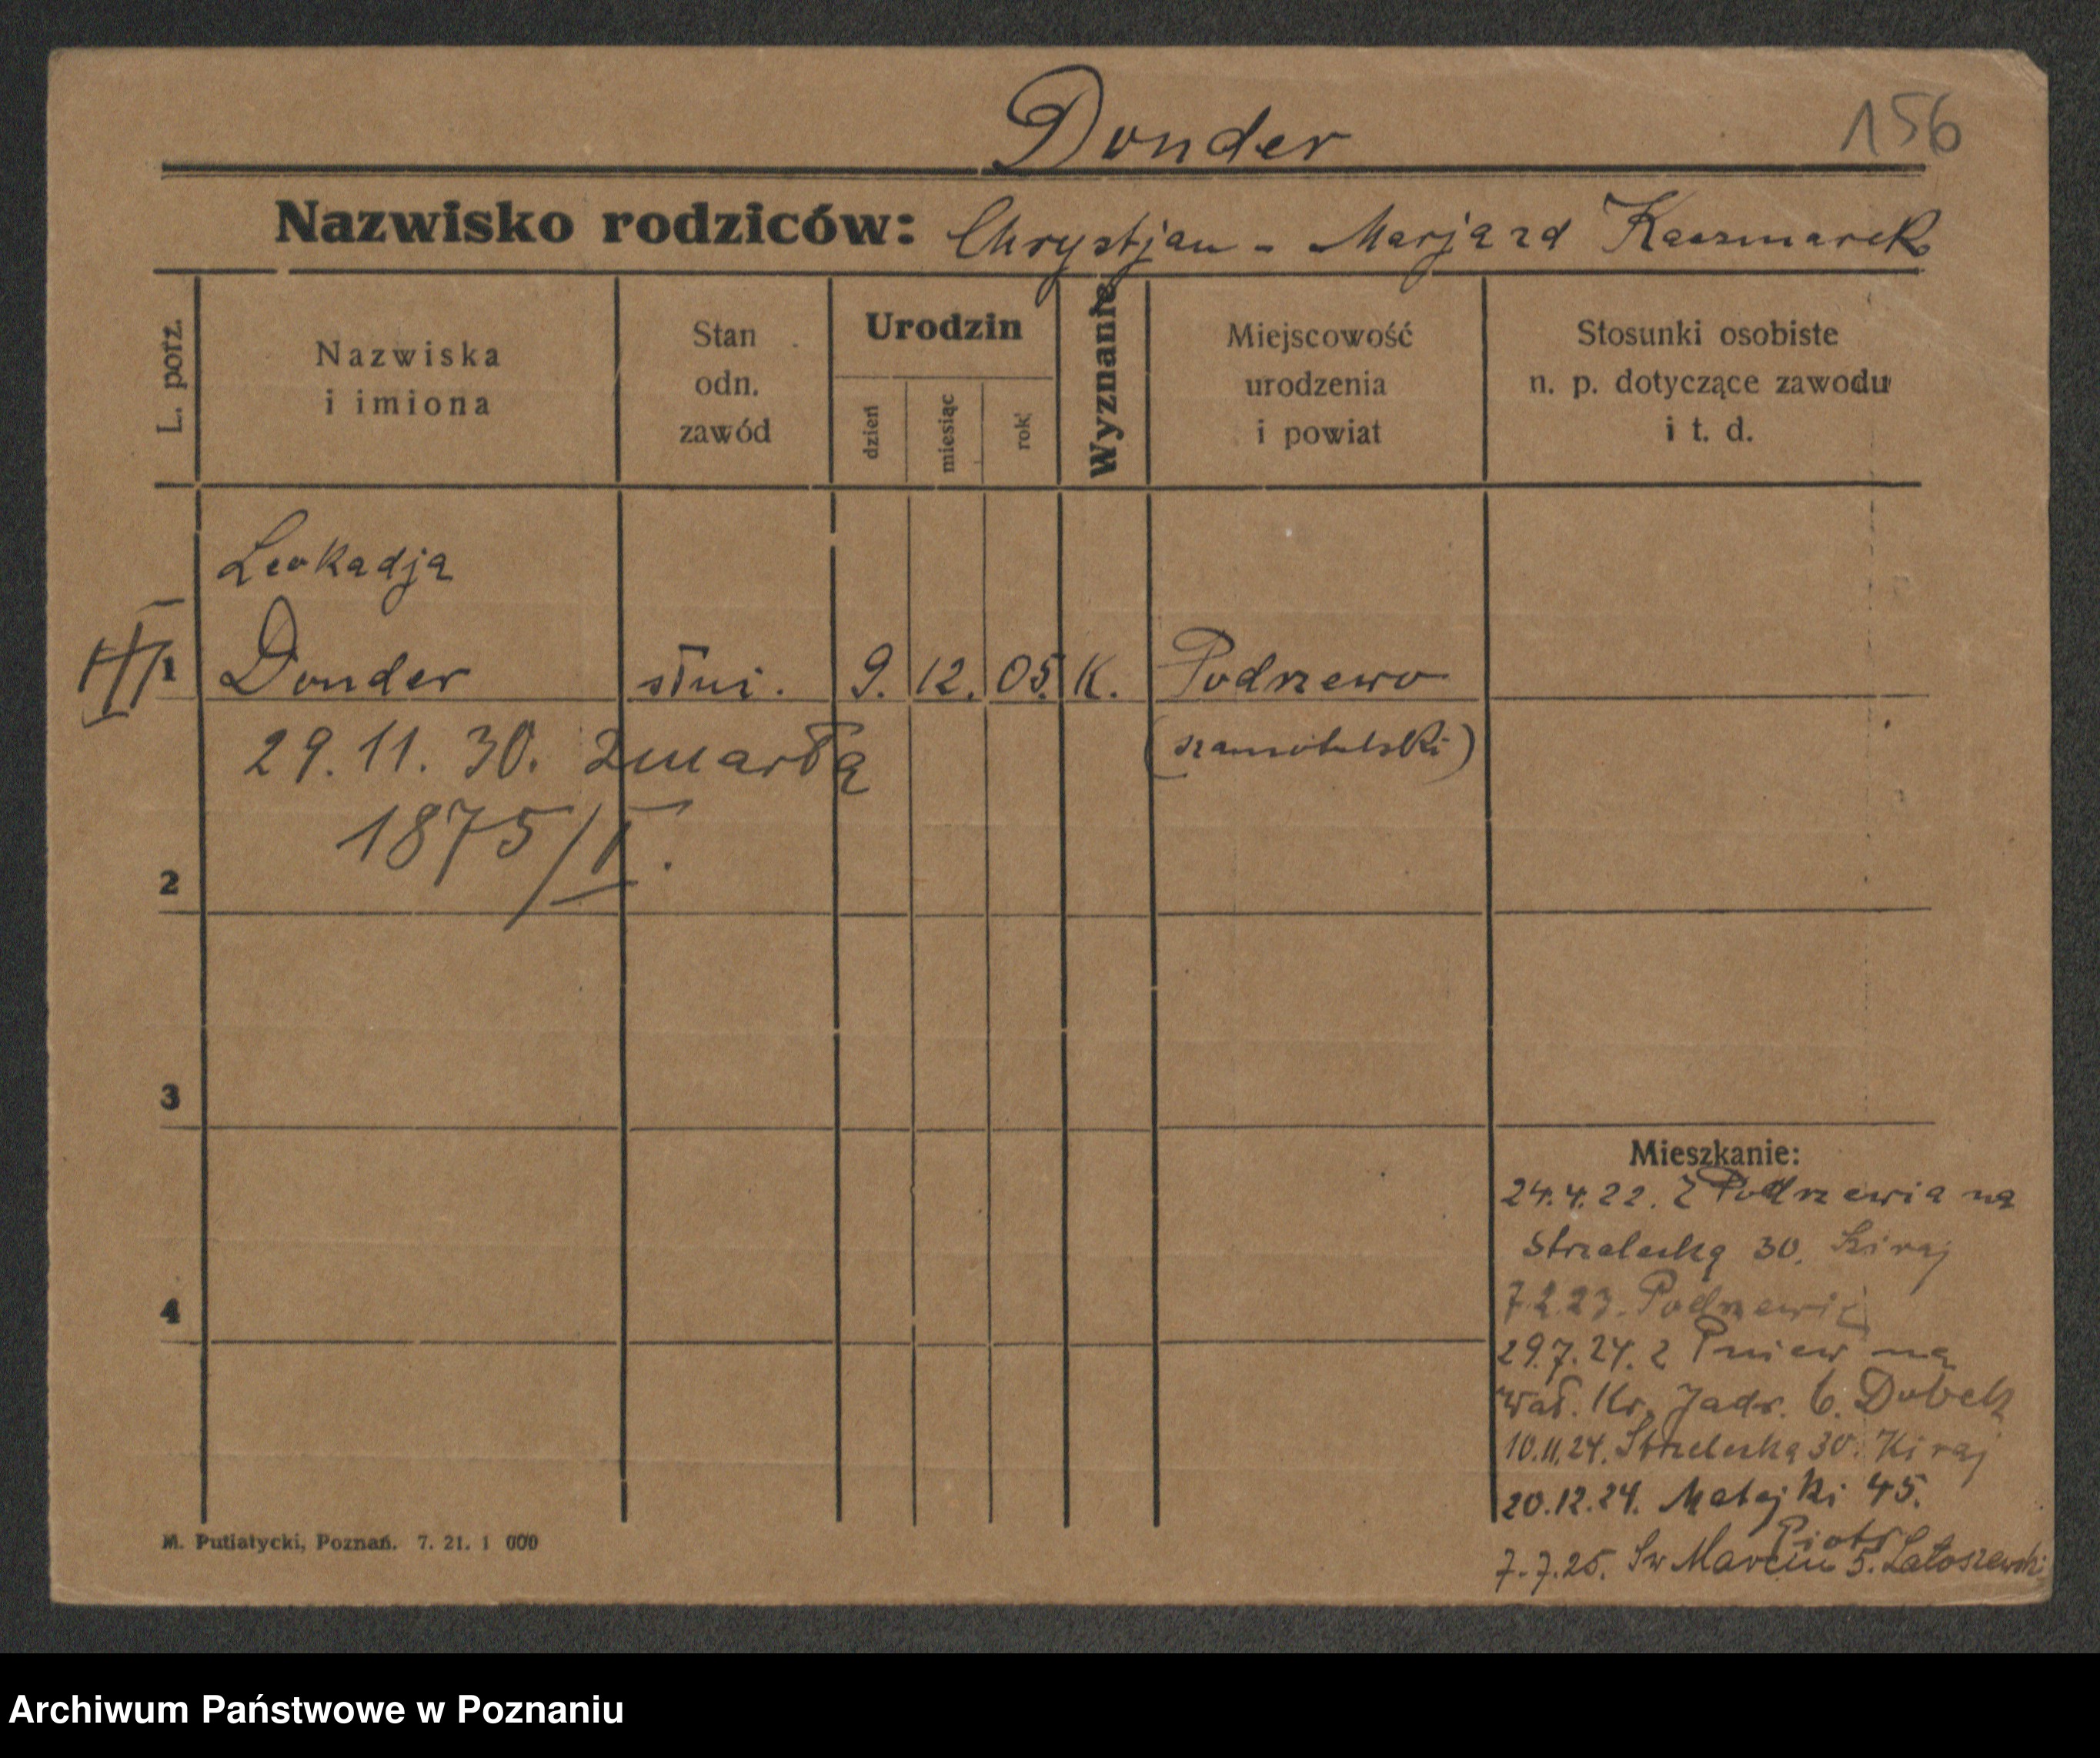 Donder
156
Nazwisko rodziców: Chrystjan - Marja zd Kaczmarek
L. porz.
Nazwiska
i imiona
Stan
odn.
zawód
Urodzin
dzień
miesiąc
rok
Wyznanie
Miejscowość
urodzenia
i powiat
Stosunki osobiste
n. p. dotyczące zawodu
i t. d.
Leokadja
1 Donder służ. 9. 12. 05. K. Podrzewo
(szamotulski)
29. 11. 30. zmarła
1875/I.
2
3
4
Mieszkanie:
24.4.22. Z Podrzewia na
Strzelecką 30.
7.2.23. Podrzewie
29.7.24. z Pniew na
Wał. Kr. Jadw. 6.
10.11.24. Strzelecka 30.
20.12.24. Matejki 45.
Piotr
7.7.25. Sw Marcin 5. Latoszewski
M. Putiatycki, Poznań. 7. 21. 1 000
Archiwum Państwowe w Poznaniu